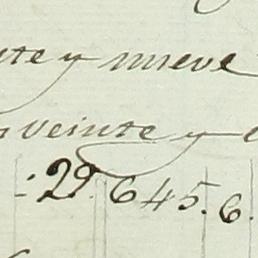 y nueve
veinte y
29.645.6.